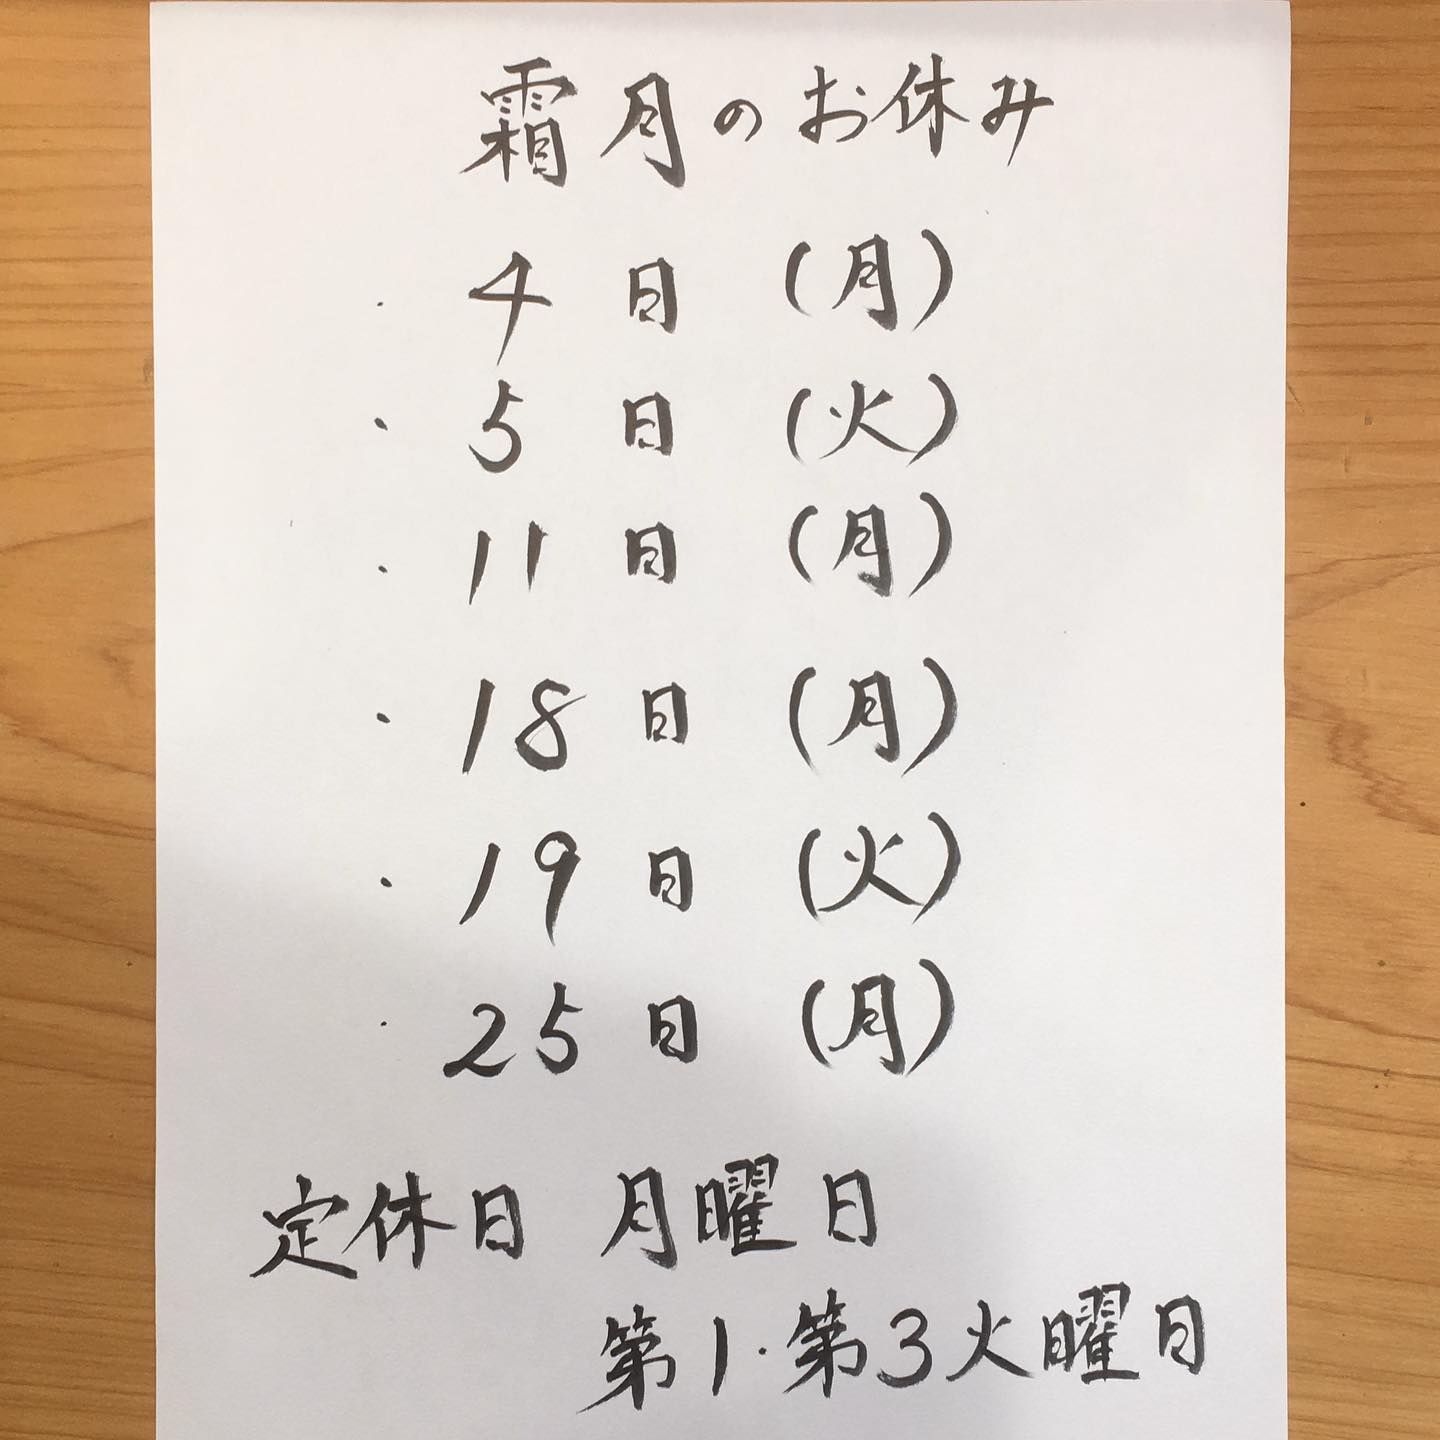 霜月のお休み
・4日(月)
・5日(火)
・11日(月)
・18日(月)
・19日(火)
・25日(月)
定休日 月曜日
第1・第3火曜日